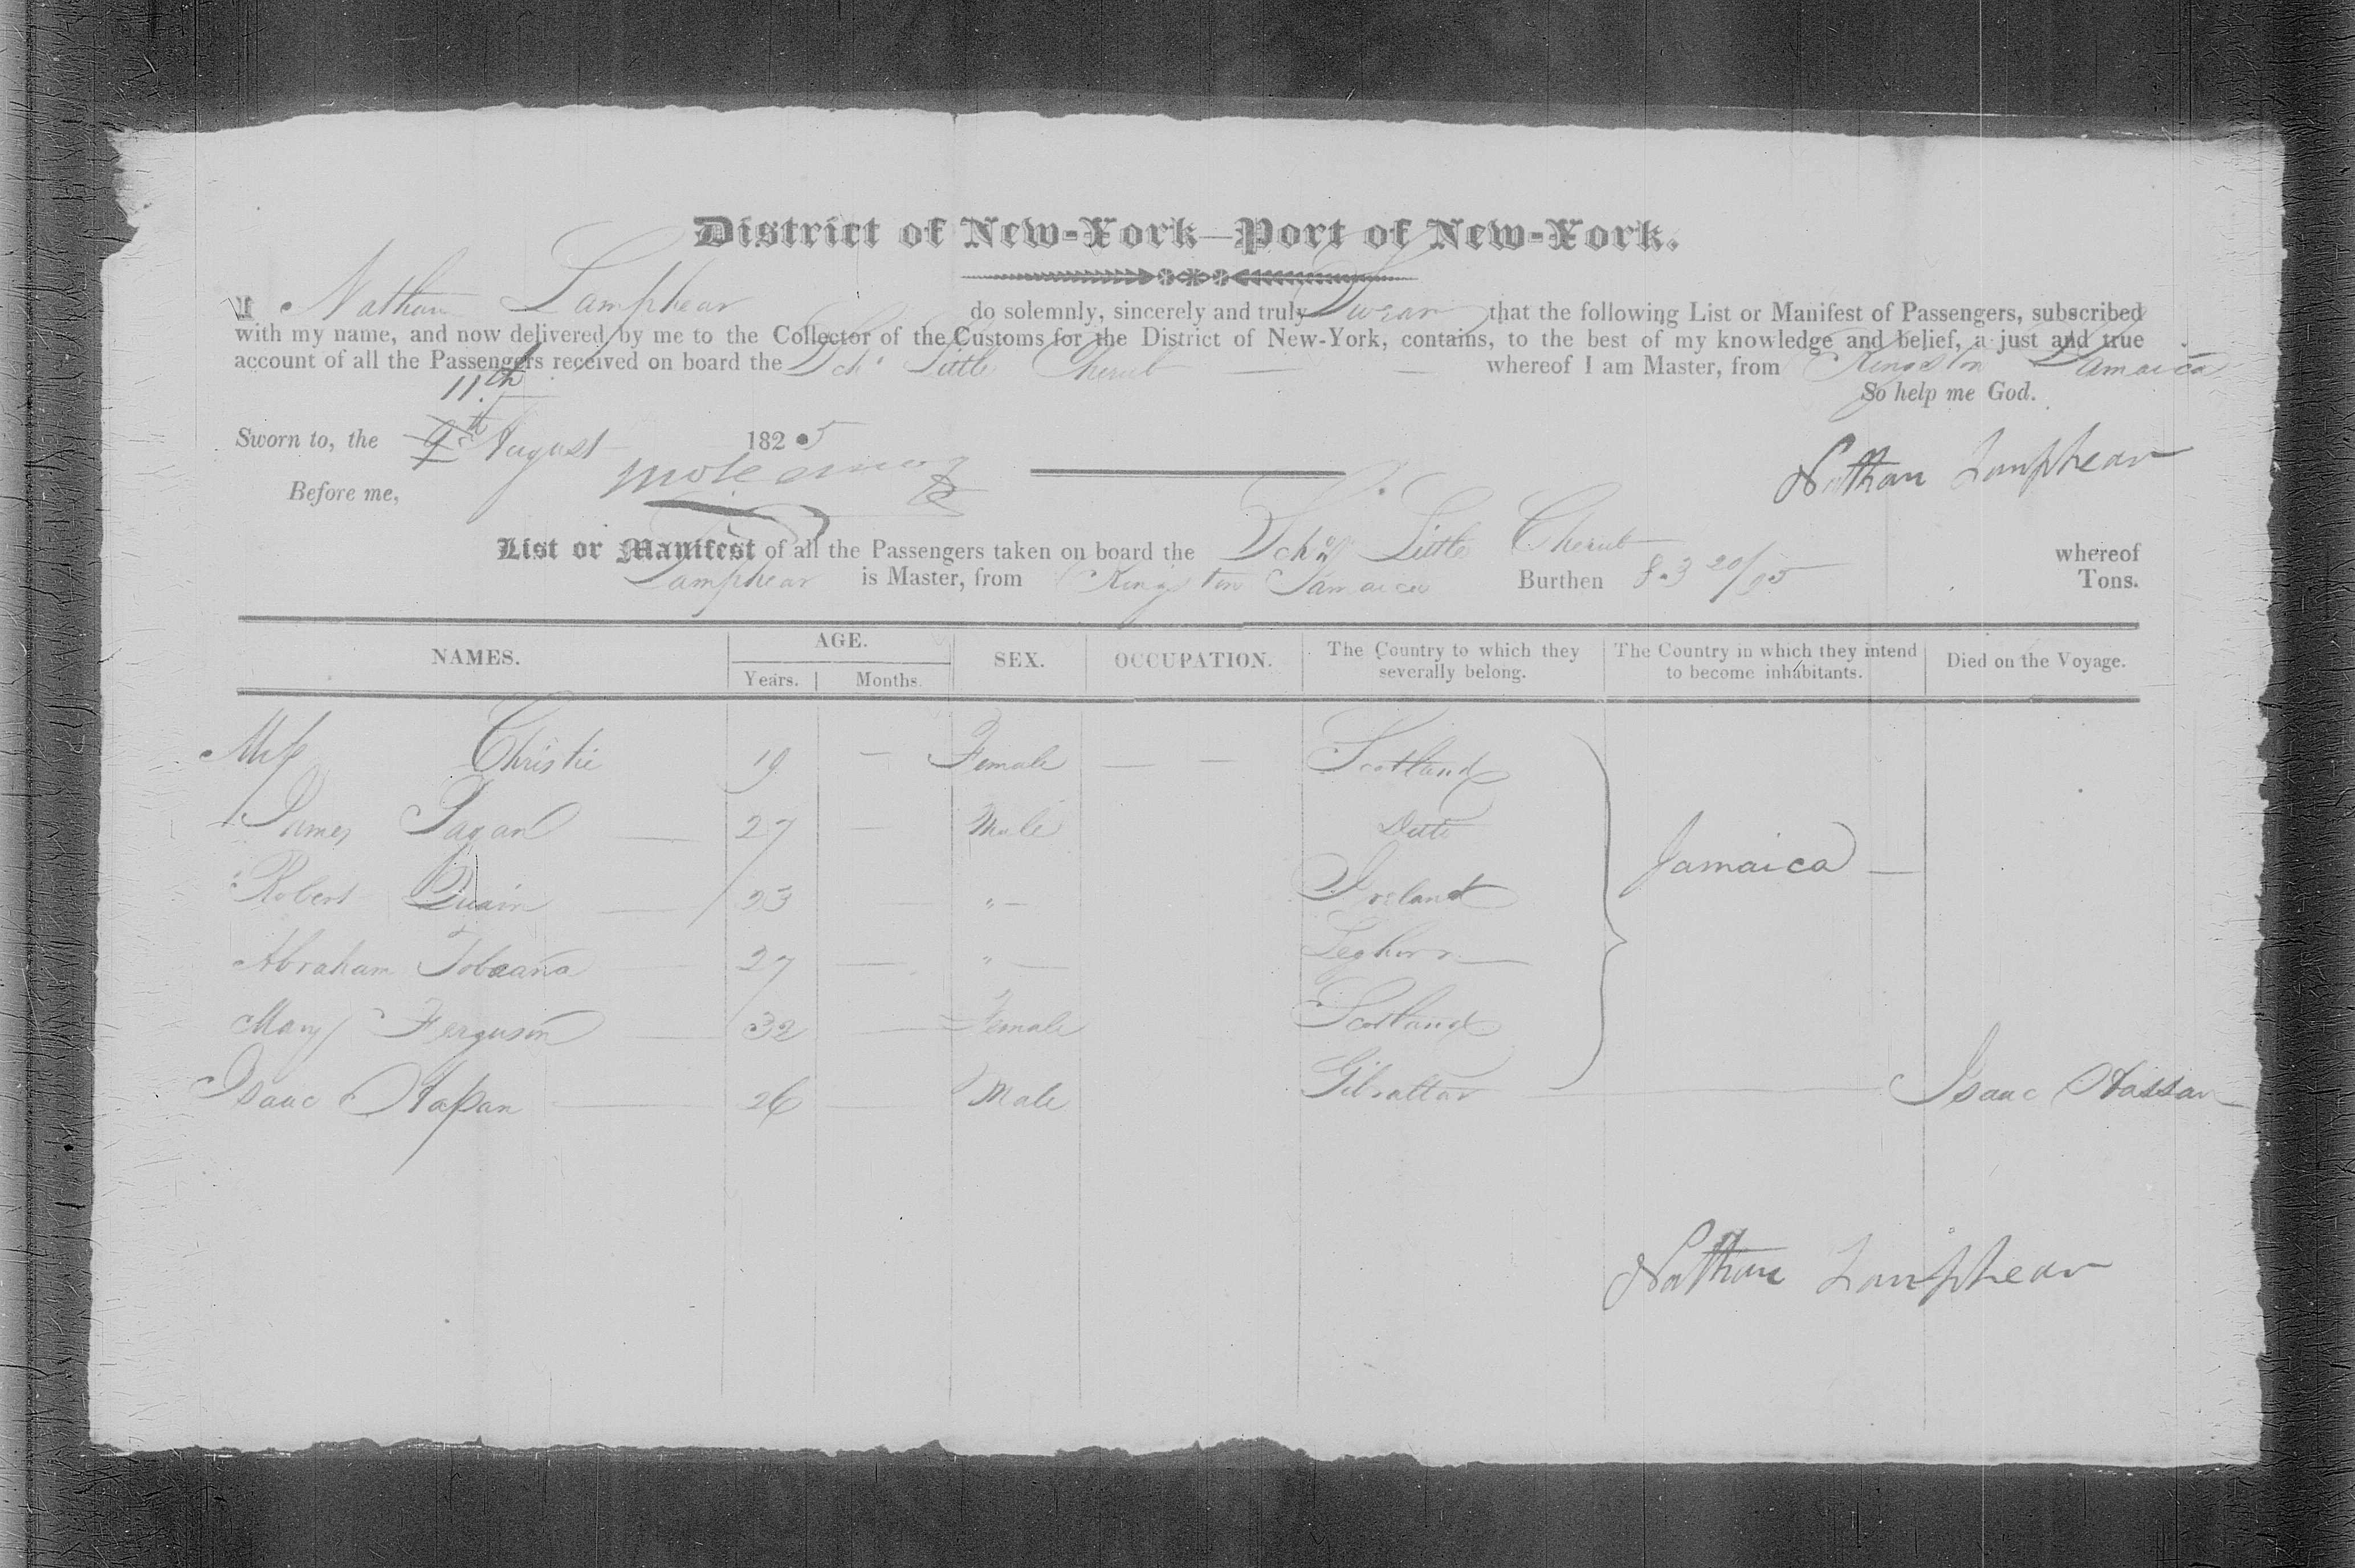 District of New-York—Port of New-York.
I Nathan Lamphear do solemnly, sincerely and truly Swear that the following List or Manifest of Passengers, subscribed
with my name, and now delivered by me to the Collector of the Customs for the District of New-York, contains, to the best of my knowledge and belief, a just and true
account of all the Passengers received on board the Schr Little Cherub — — whereof I am Master, from Kingston Jamaica
So help me God.
11th
Sworn to, the 9th August 1825
Nathan Lamphear
Before me,
List or Manifest of all the Passengers taken on board the Schr Little Cherub whereof
Lamphear is Master, from Kingston Jamaica Burthen 83 20/95 Tons.
NAMES. AGE. SEX. OCCUPATION. The Country to which they severally belong. The Country in which they intend to become inhabitants. Died on the Voyage.
Years. Months.
Miss Christie 19 — Female — — Scotland
James Pagan — 27 — Male Ditto
Jamaica —
Robert Quain — 23 " — Ireland
Abraham — 27 — " — Leghorn —
Mary Ferguson — 32 — Female Scotland
Isaac Hassan — 26 — Male Gibraltar — Isaac Hassan
Nathan Lamphear